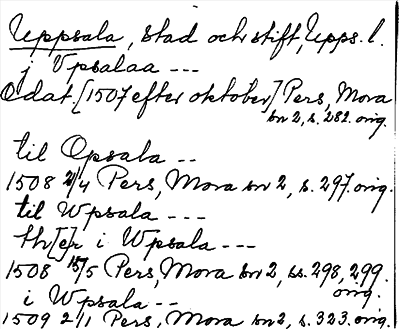 Uppsala, stad och stift, Upps. l.
j Vpsalaa ---
Odat. [1507 efter oktober] Pers, Mora
bn 2, s. 282. orig.
til Opsala --
1508 2/4 Pers, Mora bn 2, s. 297. orig.
til Wpsala ---
th[e]r i Wpsala ---
1508 15/5 Pers, Mora bn 2, ss. 298, 299.
orig.
i Wpsala ---
1509 2/1 Pers, Mora bn 2, s. 323. orig.